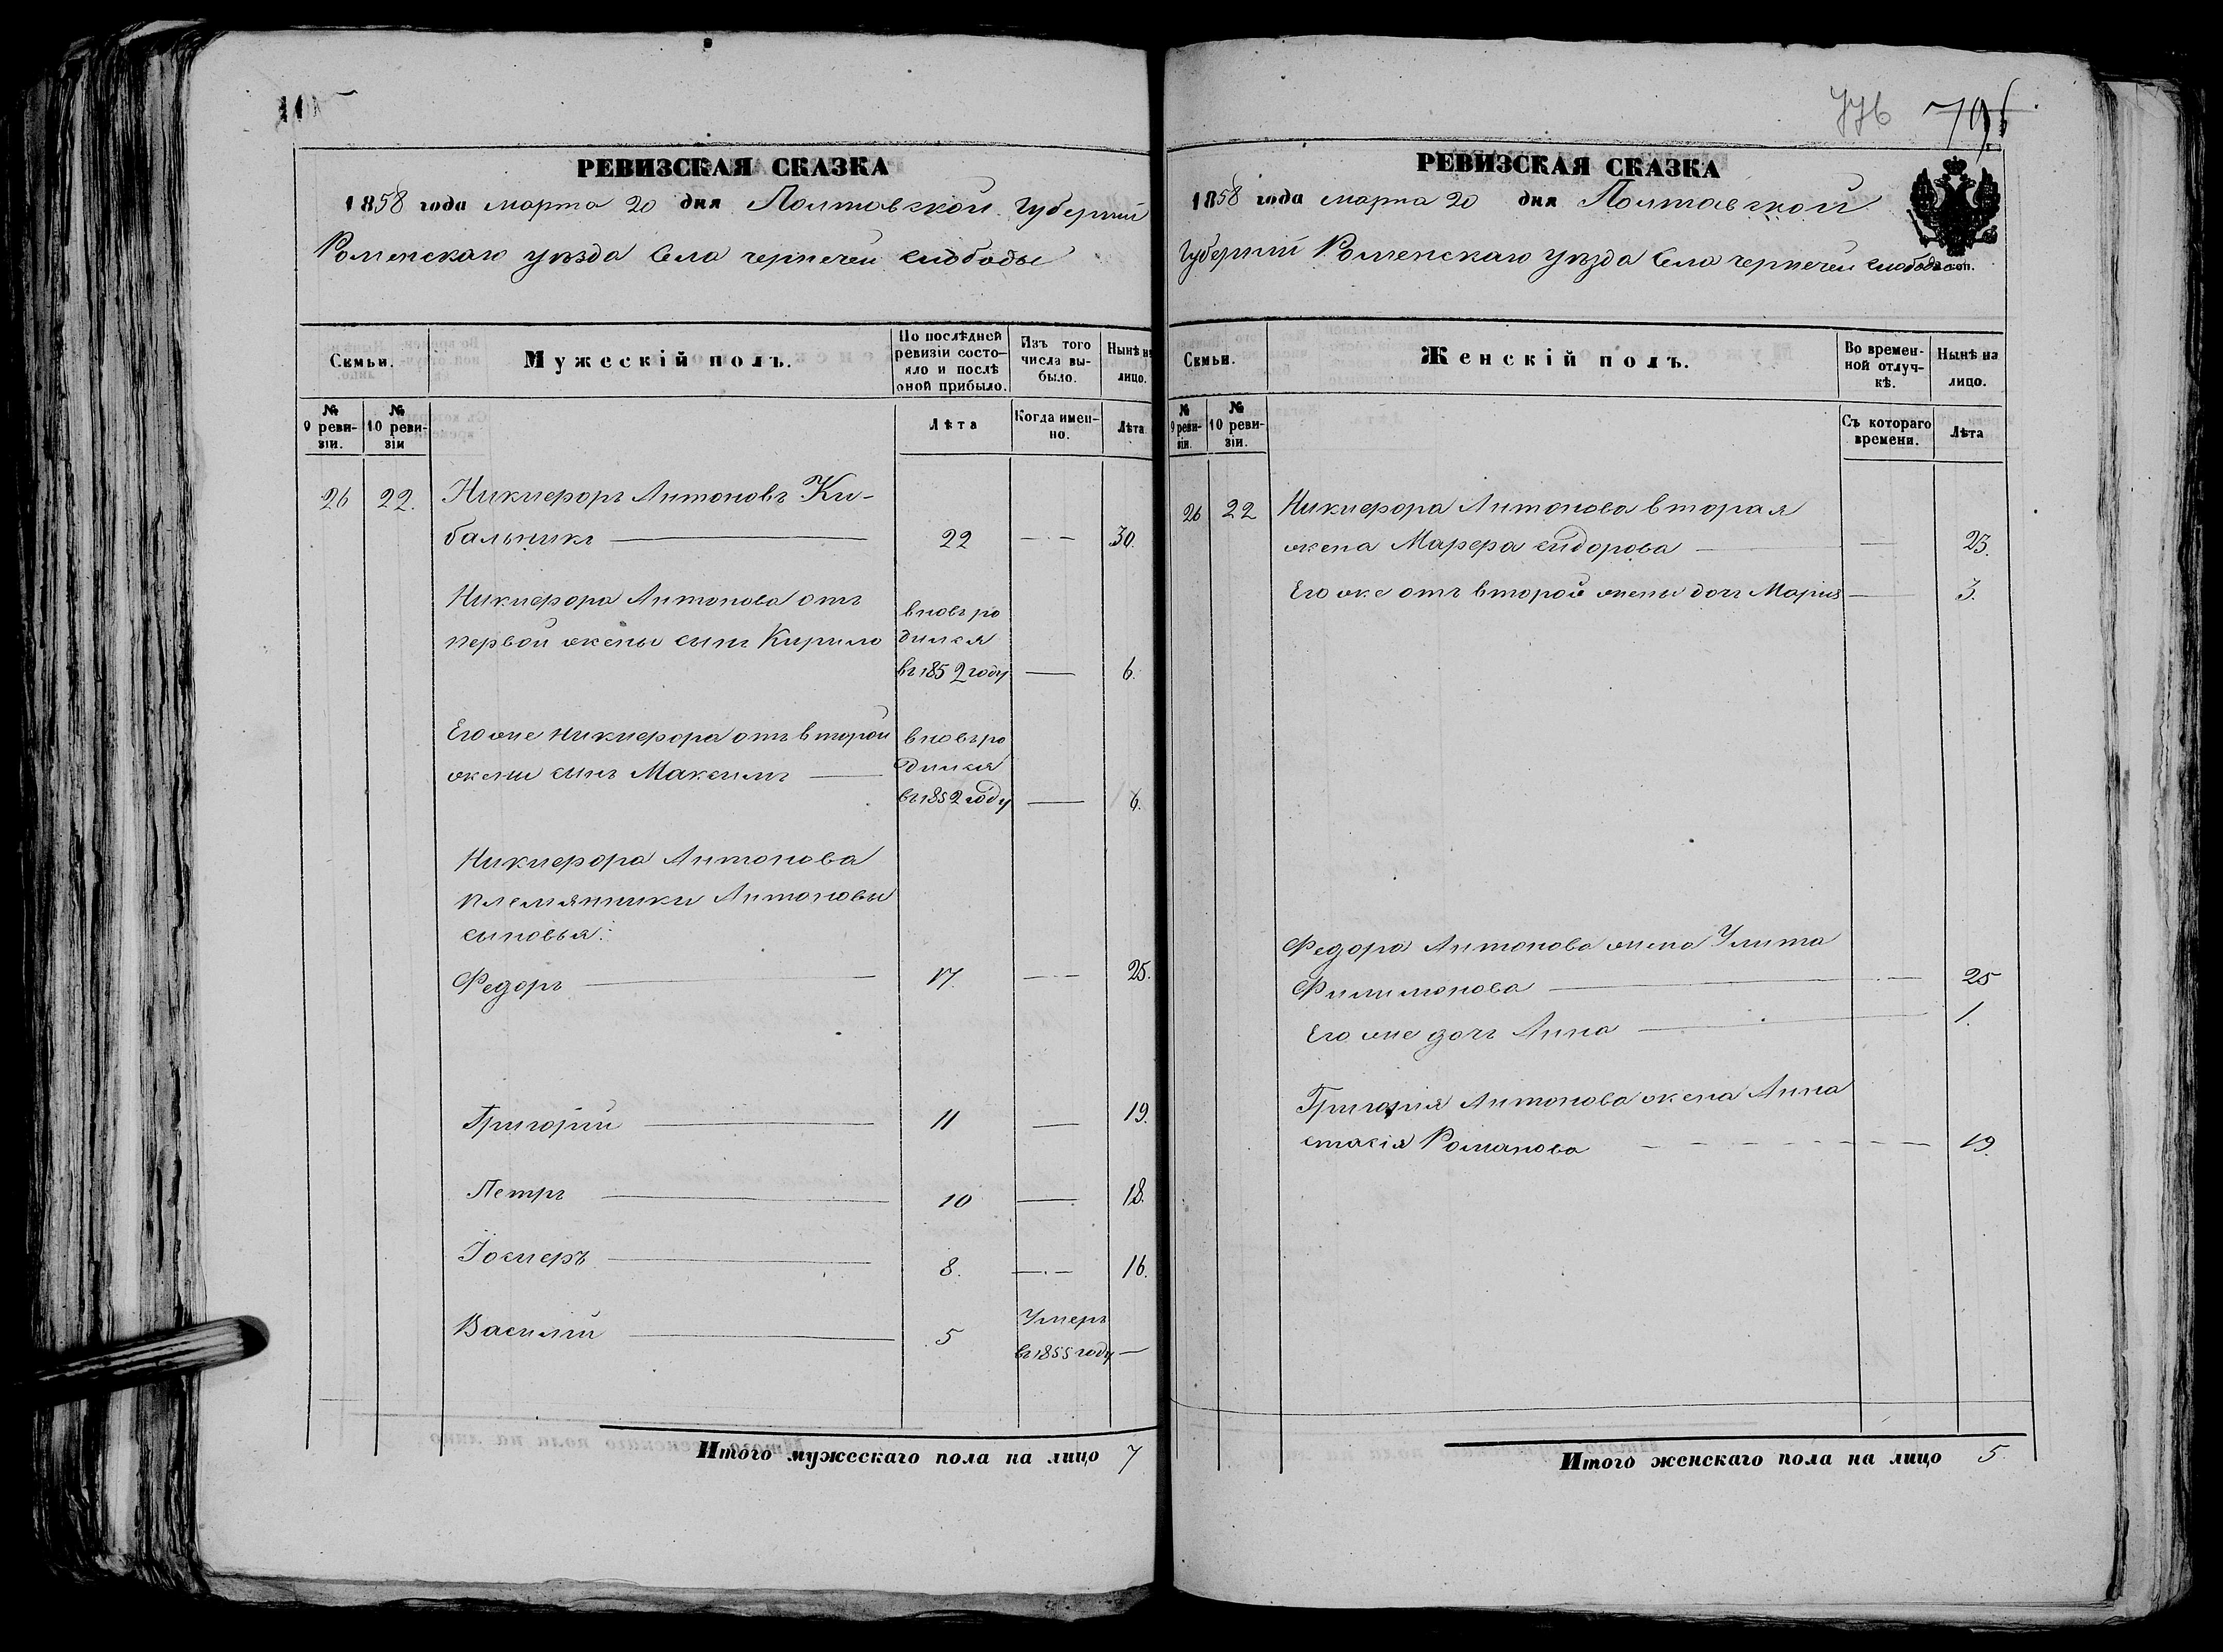 РЕВИЗСКАЯ СКАЗКА
1858 года марта 20 дня Полтавской Губернии
Роменскаго уезда Села чернечей слободы
Семьи.
Мужескій полъ.
По послѣдней ревизіи состояло и послѣ оной прибыло.
Изъ того числа выбыло.
Нынѣ на лицо.
№ 9 ревизіи.
№ 10 ревизіи
Лѣта
Когда именно.
Лѣта
26 22. Никифоръ Антоновъ Ки-
бальникъ 22 30.
Никифора Антонова отъ
первой жены сынъ Кирило
вновь ро
дился
въ 1852 году 6.
Его же Никифора отъ второй
жены сынъ Максимъ
вновь ро
дился
въ 1852 году 6.
Никифора Антонова
племянники Антоновы
сыновья:
Федоръ 17. 25.
Григорий 11 19.
Петръ 10 18.
Іосифъ 8. 16.
Василий 5
Умеръ
въ 1855 году
Итого мужескаго пола на лицо 7
776
РЕВИЗСКАЯ СКАЗКА
1858 года марта 20 дня Полтавской
Губернии Роменскаго уезда Села чернечей слободы
коп.
Семьи.
Женскій полъ.
Во временной отлучкѣ.
Нынѣ на лицо.
№ 9 ревизіи.
№ 10 ревизіи.
Съ котораго времени.
Лѣта
26 22 Никифора Антонова вторая
жена Марфа Сидорова 23.
Его же отъ второй жены дочь Мария 3.
Федора Антонова жена Улита
Филимонова 25
Его же дочь Анна 1.
Григория Антонова жена Анна
стасія Романова 19.
Итого женскаго пола на лицо 5.